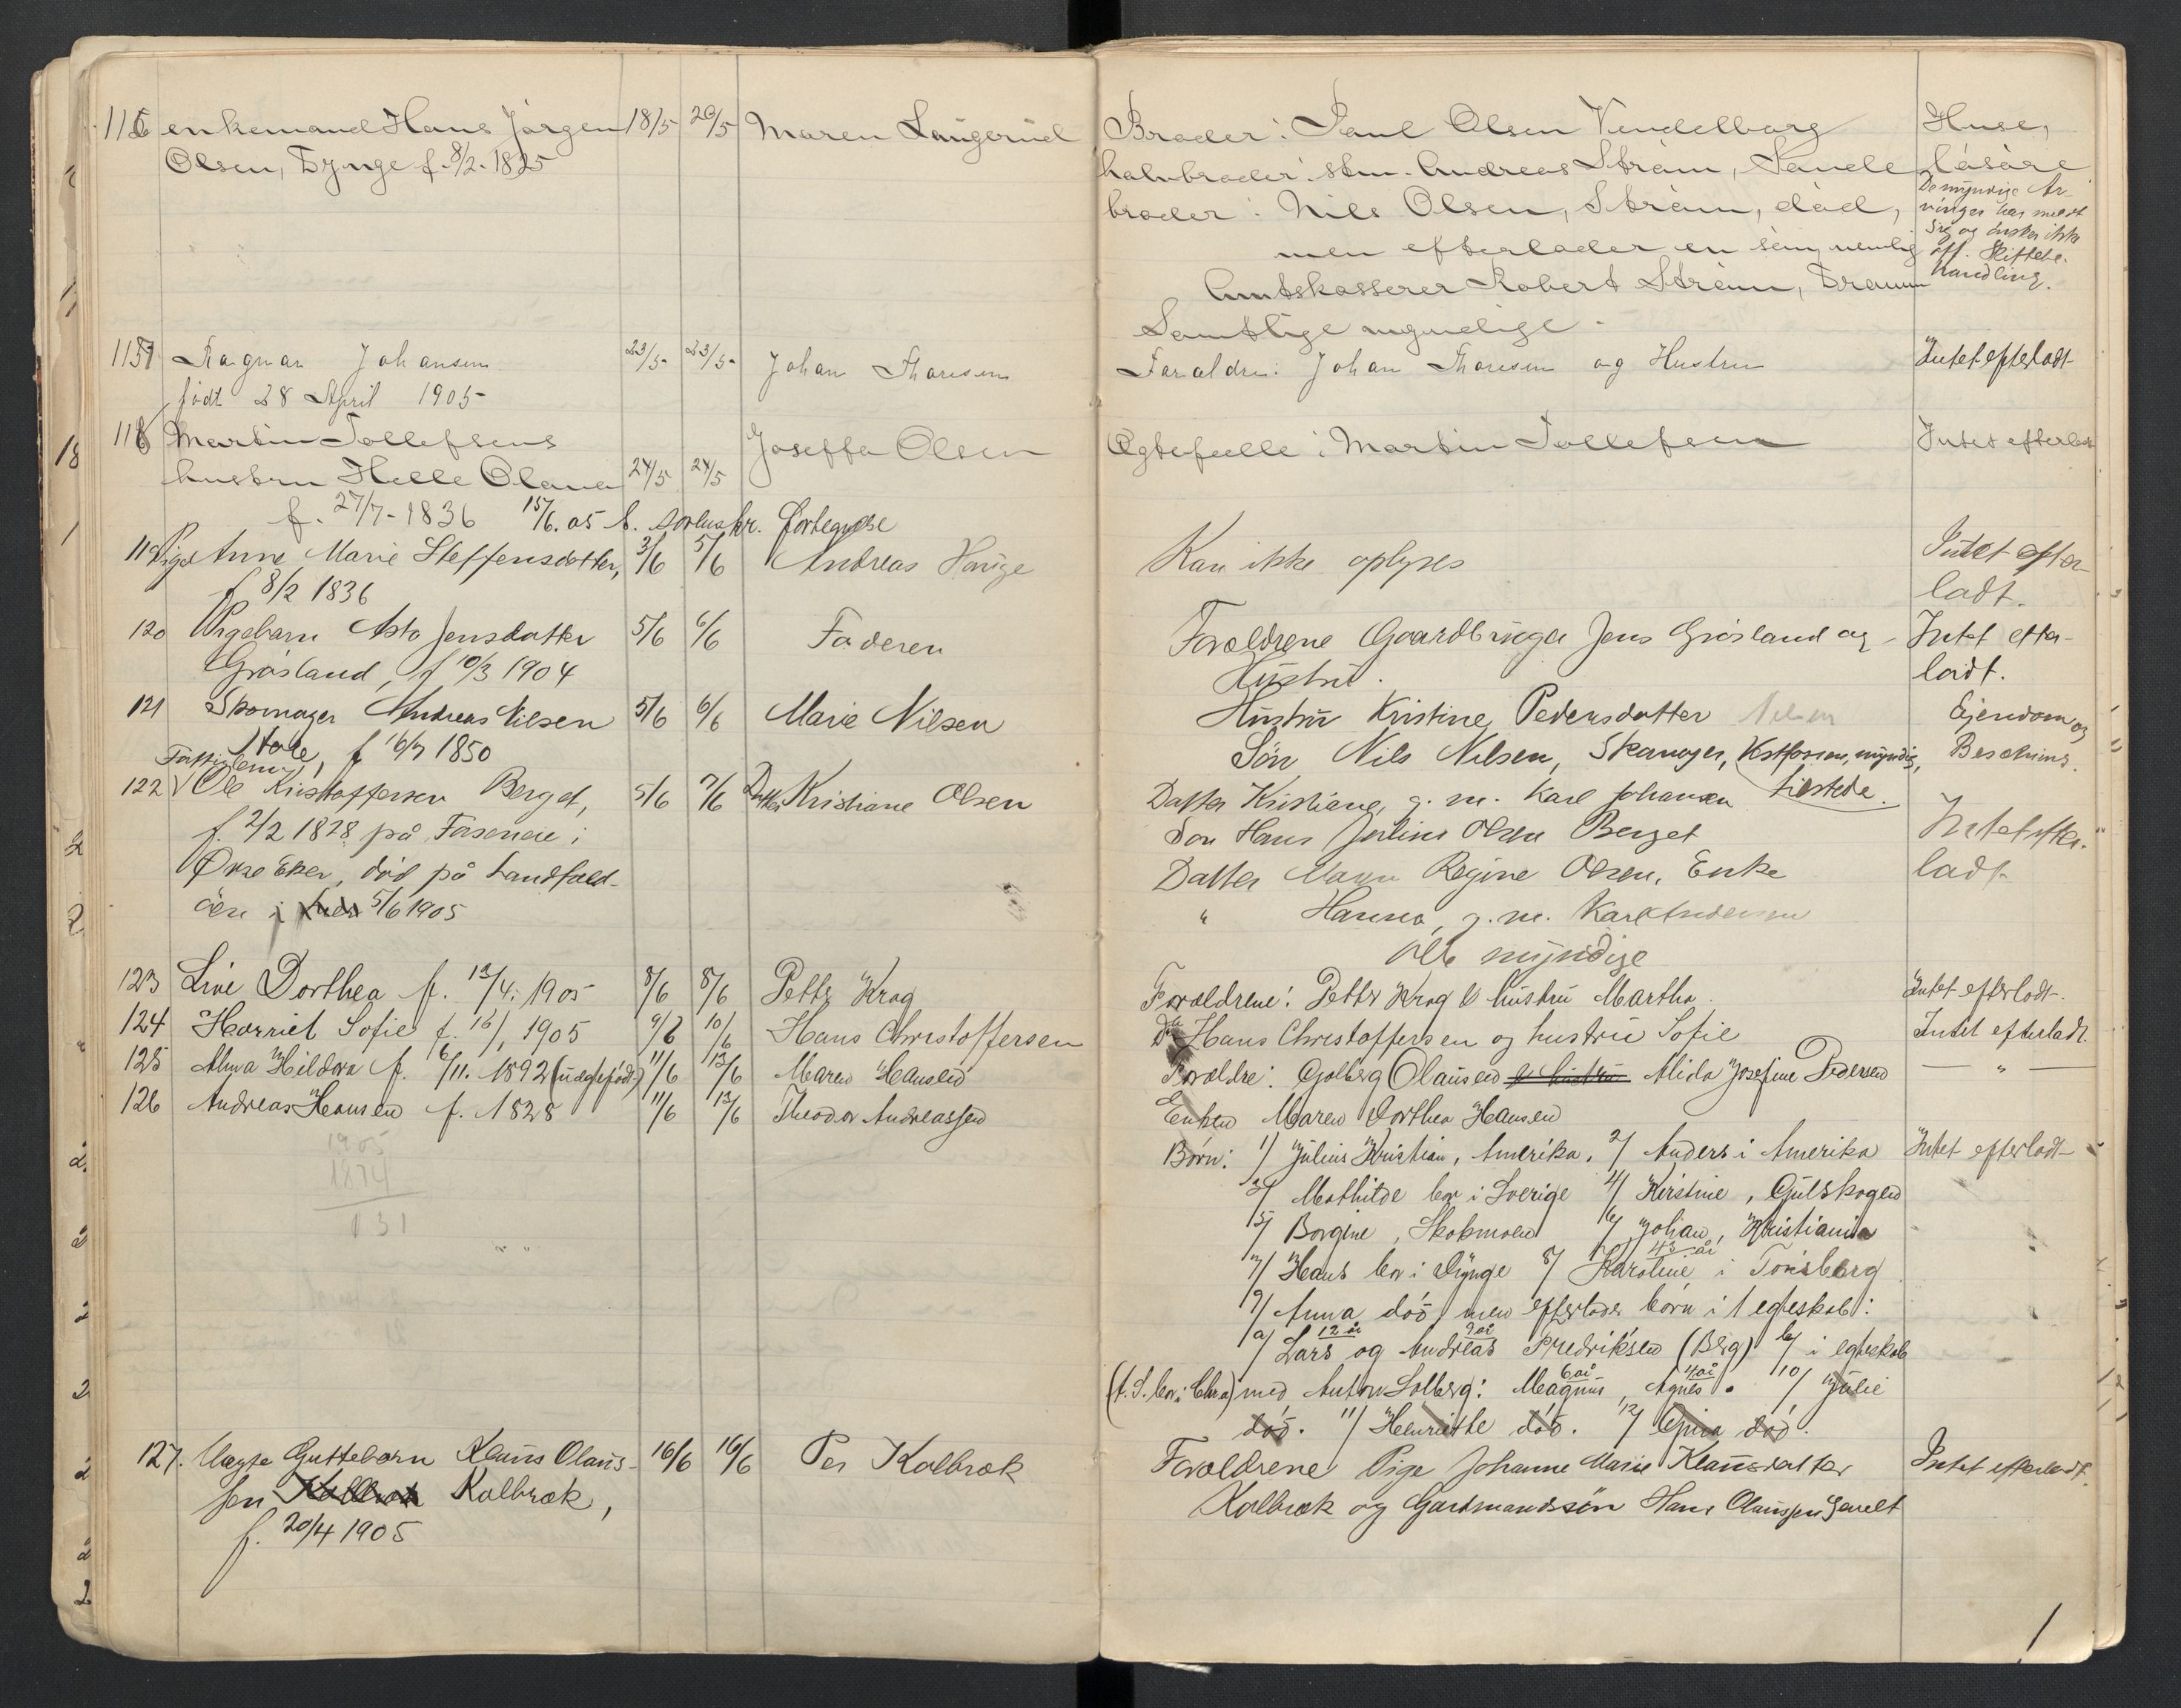 116 enkemand Hans Jørgen 18/5 20/5 Maren Langerud
Olsen, Dynge f. 8/2. 1825
1157 Ragnar Johansen 23/5 23/5 Johan Thoresen
født 28 April 1905
118 Martin Tollefsens Joseffa Olsen
hustru Helle Olava 24/5 24/5
f. 27/7-1836 15/6. 05 t. sorenskr. fortegnelse
119 Pige Anne Marie Steffensdatter, 3/6 5/6 Andreas Hauge
f 8/2 1836
120 Pigebarn Asta Jensdatter 5/6 6/6 Faderen
Gråsland, f 10/3 1904
121 Skomager Andreas Nilsen 5/6 6/6 Marie Nilsen
f 16/7 1850
Fattiglem,
122 Ole Kristoffersen Berget, 5/6 7/6 Datter Kristiane Olsen
f. 2/2 1828 på Fåsenere i
Øvre Eker, død på Landfald-
öen i 5/6 1905
123 Live Dorthea f. 13/4. 1905 8/6 8/6 Petter Krog
124 Harriet Sofie f. 16/1 1905 9/6 10/6 Hans Christoffersen
125 Alma Hildora f. 6/11. 1892 (uægtefødt) 11/6 13/6 Maren Hansen
126 Andreas Hansen f. 1828 11/6 13/6 Theodor Andreassen
1905
1874
131
127. Uægte Guttebarn Klaus Olaus- 16/6 16/6 Per Kolbræk
sen Kolbræk Kolbræk,
f. 20/4 1905
Broder: Paul Olsen Vendelborg Huse,
halvbroder: stm. Andreas Strøm, Sande løsøre
broder: Nils Olsen, Strøm, død,
men efterlader en søn nemlig
Amtskasserer Robert Strøm, Dramm
Samtlige myndige.
De myndige Ar-
vinger har meldt
sig og ønsker ikke
off. Skiftebe-
handling.
Foraldre: Johan Thoresen og Hustru Intet efterladt
Ægtefælle: Martin Tollefsen Intet efterlat
Kan ikke oplyses Intet efter-
ladt.
Forældrene Gaardbruger Jens Gråsland og Intet efter-
Hustru. ladt.
Hustru Kristine Pedersdatter Nilsen Ejendom og
Sön Nils Nilsen, Skomager, Vestfossen, myndig, Besætning.
tilstede.
Datter Kristiane, g. m. Karl Johansen
Søn Hans Julius Olsen Berget Intet efter-
Datter Maren Regine Olsen, Enke ladt
" Hanna, g. m. Karl Andersen
Alle myndige
Forældrene: Petter Krog & hustru Martha. Intet efterladt.
Do Hans Christoffersen og hustru Sofie Intet efterladt.
Forældre: Golberg Olausen & hustru Alida Josefine Pedersen — " —
Enken Maren Dorthea Hansen
Børn: 1/ Julius Kristian, Amerika. 2/ Anders i Amerika Intet efterladt
3/ Mathilde bor i Sverige 4/ Kirstine, Gulskogen
5/ Borgine, Skotmoen 6/ Johan, Kristiania
43 år
7/ Hans bor i Dynge 8/ Karoline i Tönsberg
9/ Anna död, men efterlader børn i 1 egteskab:
12 år 9 år
a/ Lars og Andreas Fredriksen (Berg) b/ i egteskab
6 år 4 år
(A. S. bor i Chra) med Anton Solberg: Magnus, Agnes. 10/ Julie
död. 11/ Henriette död. 12/ död.
Forældrene Pige Johanne Marie Klausdatter Intet efterladt.
Kolbræk og Gardmandssön Hans Olaussen